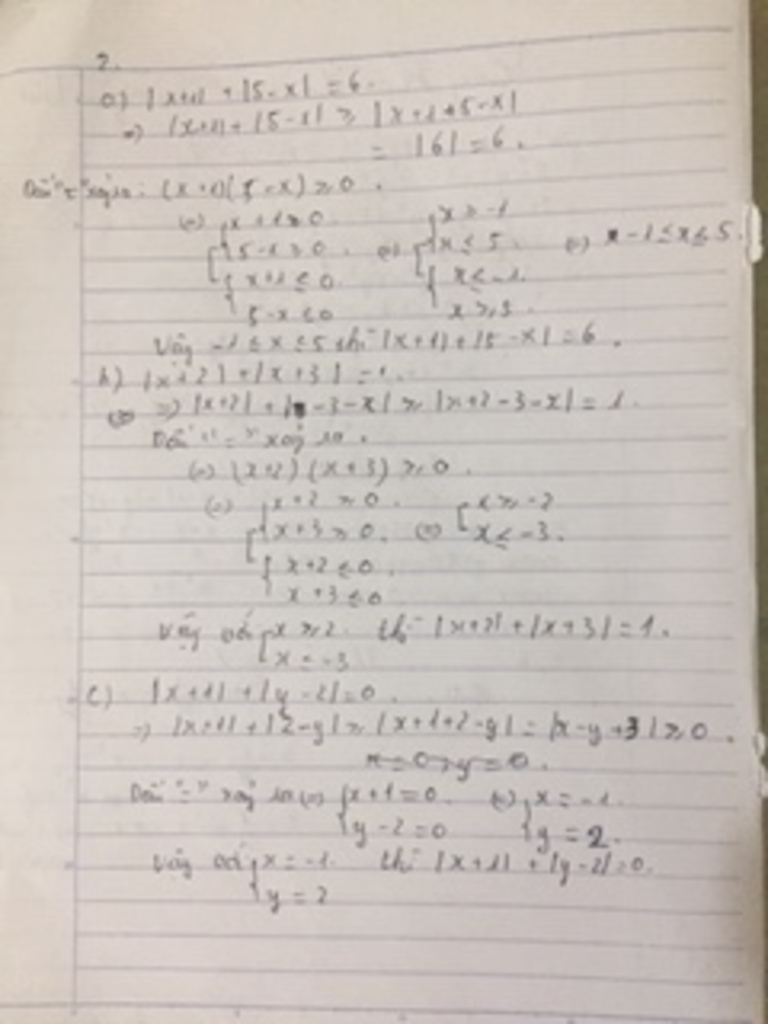 2.
a) |x+1| + |5-x| = 6.
=> |x+1| + |5-x| ≥ |x+1+5-x|
= |6| = 6.
Dấu "=" xảy ra: (x+1)(5-x) ≥ 0.
(=) [ { x+1 ≥ 0 (=) [ { x ≥ -1
5-x ≥ 0. x ≤ 5. (=) x -1 ≤ x ≤ 5.
{ x+1 ≤ 0. { x ≤ -1.
5-x ≤ 0 x ≥ 5.
Vậy -1 ≤ x ≤ 5 thì |x+1| + |5-x| = 6.
b) |x+2| + |x+3| = 1.
=> |x+2| + |-3-x| ≥ |x+2-3-x| = 1.
Dấu "=" xảy ra.
(=) (x+2)(x+3) ≥ 0.
(=) [ { x+2 ≥ 0. (=) [ x ≥ -2
x+3 ≥ 0. x ≤ -3.
{ x+2 ≤ 0.
x+3 ≤ 0
Vậy với [ x ≥ 2. thì |x+2| + |x+3| = 1.
x = -3
c) |x+1| + |y-2| = 0.
=> |x+1| + |2-y| ≥ |x+1+2-y| = |x-y+3| ≥ 0.
x=0, y=0.
Dấu "=" xảy ra (=) { x+1 = 0. (=) { x = -1.
y-2 = 0 y = 2.
Vậy với { x = -1. thì |x+1| + |y-2| = 0.
y = 2